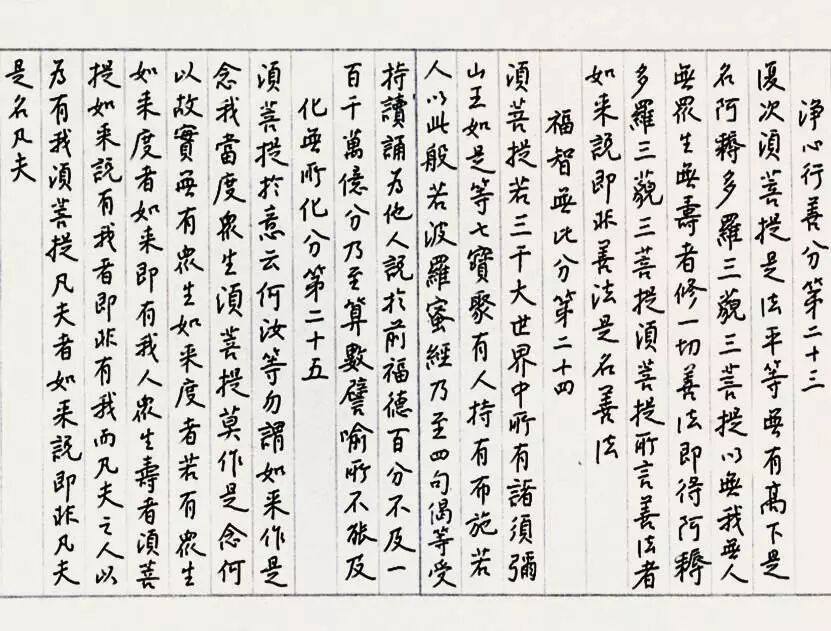 净心行善分第二十三
復次須菩提是法平等無有高下是
名阿耨多羅三藐三菩提以無我無人
無眾生無壽者修一切善法即得阿耨
多羅三藐三菩提須菩提所言善法者
如来說即非善法是名善法
福智無比分第二十四
須菩提若三千大世界中所有諸須彌
山王如是等七寶聚有人持有布施若
人以此般若波羅蜜經乃至四句偈等受
持讀誦為他人說於前福德百分不及一
百千萬億分乃至算數譬喻所不能及
化無所化分第二十五
須菩提於意云何汝等勿謂如来作是
念我當度眾生須菩提莫作是念何
以故實無有眾生如来度者若有眾生
如来度者如来即有我人眾生壽者須菩
提如来說有我者即非有我而凡夫之人以
為有我須菩提凡夫者如来說即非凡夫
是名凡夫